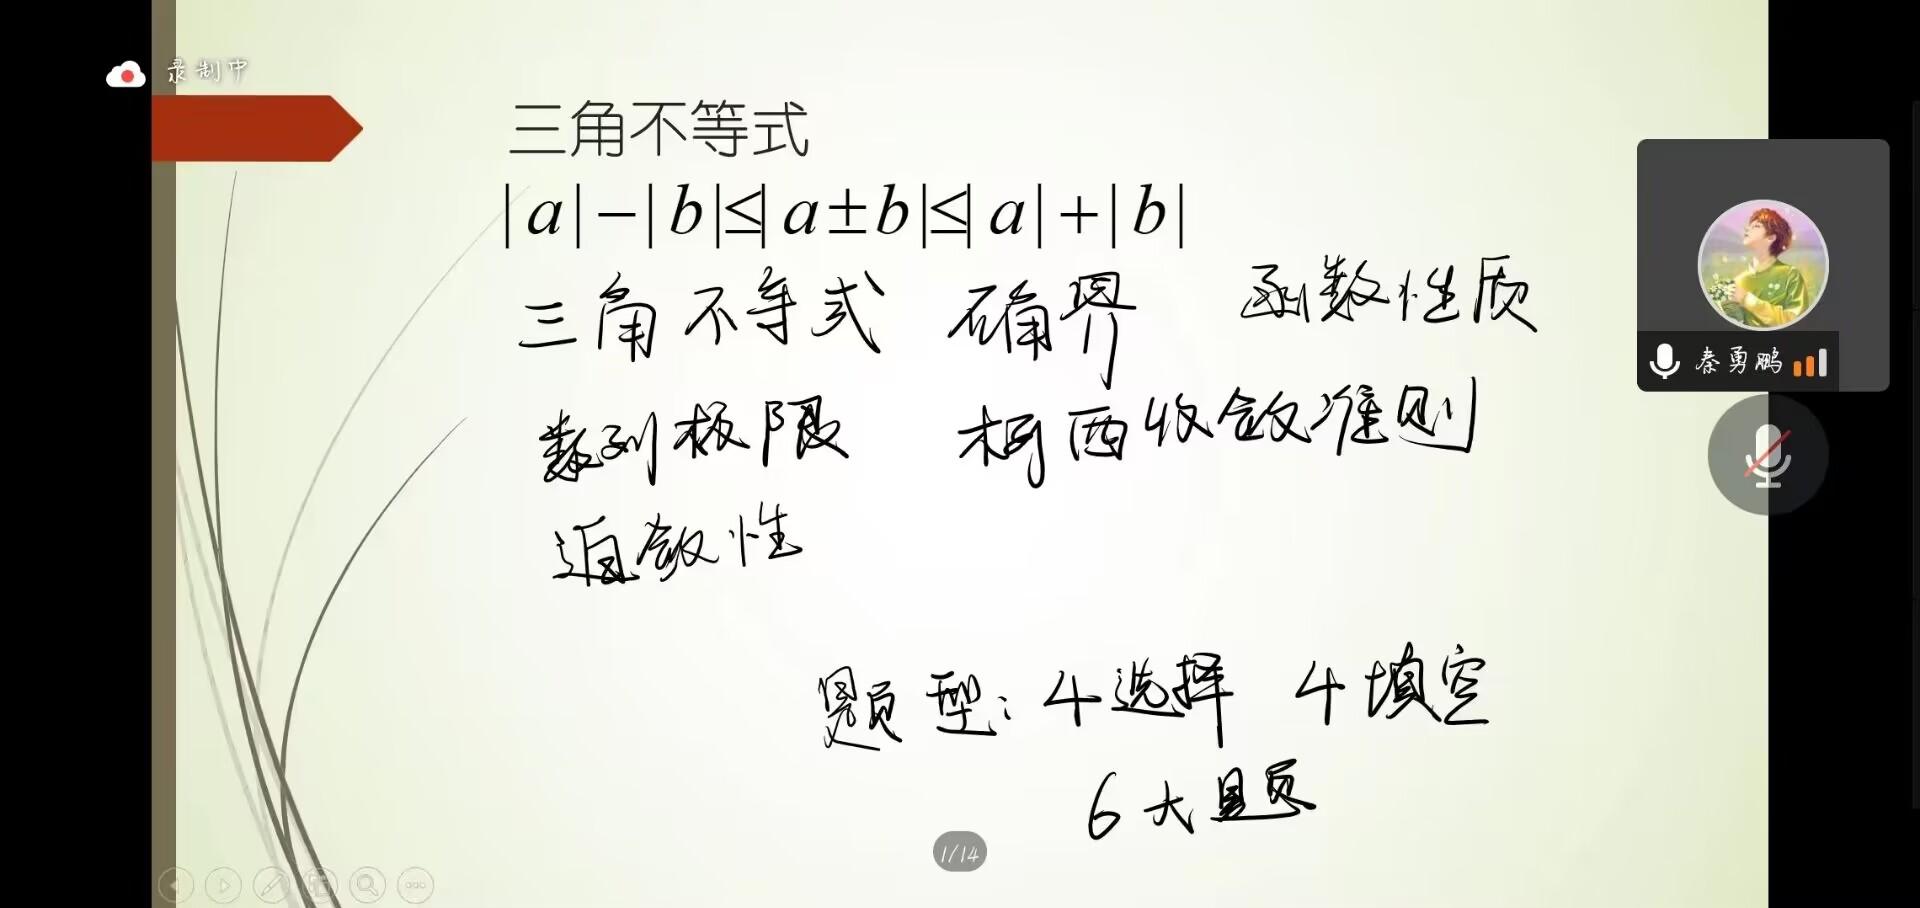 录制中
三角不等式
|a|−|b|≤|a±b|≤|a|+|b|
三角不等式 确界 函数性质
秦勇鹏
数列极限 柯西收敛准则
迫敛性
题型：4选择 4填空
6大题
1/14